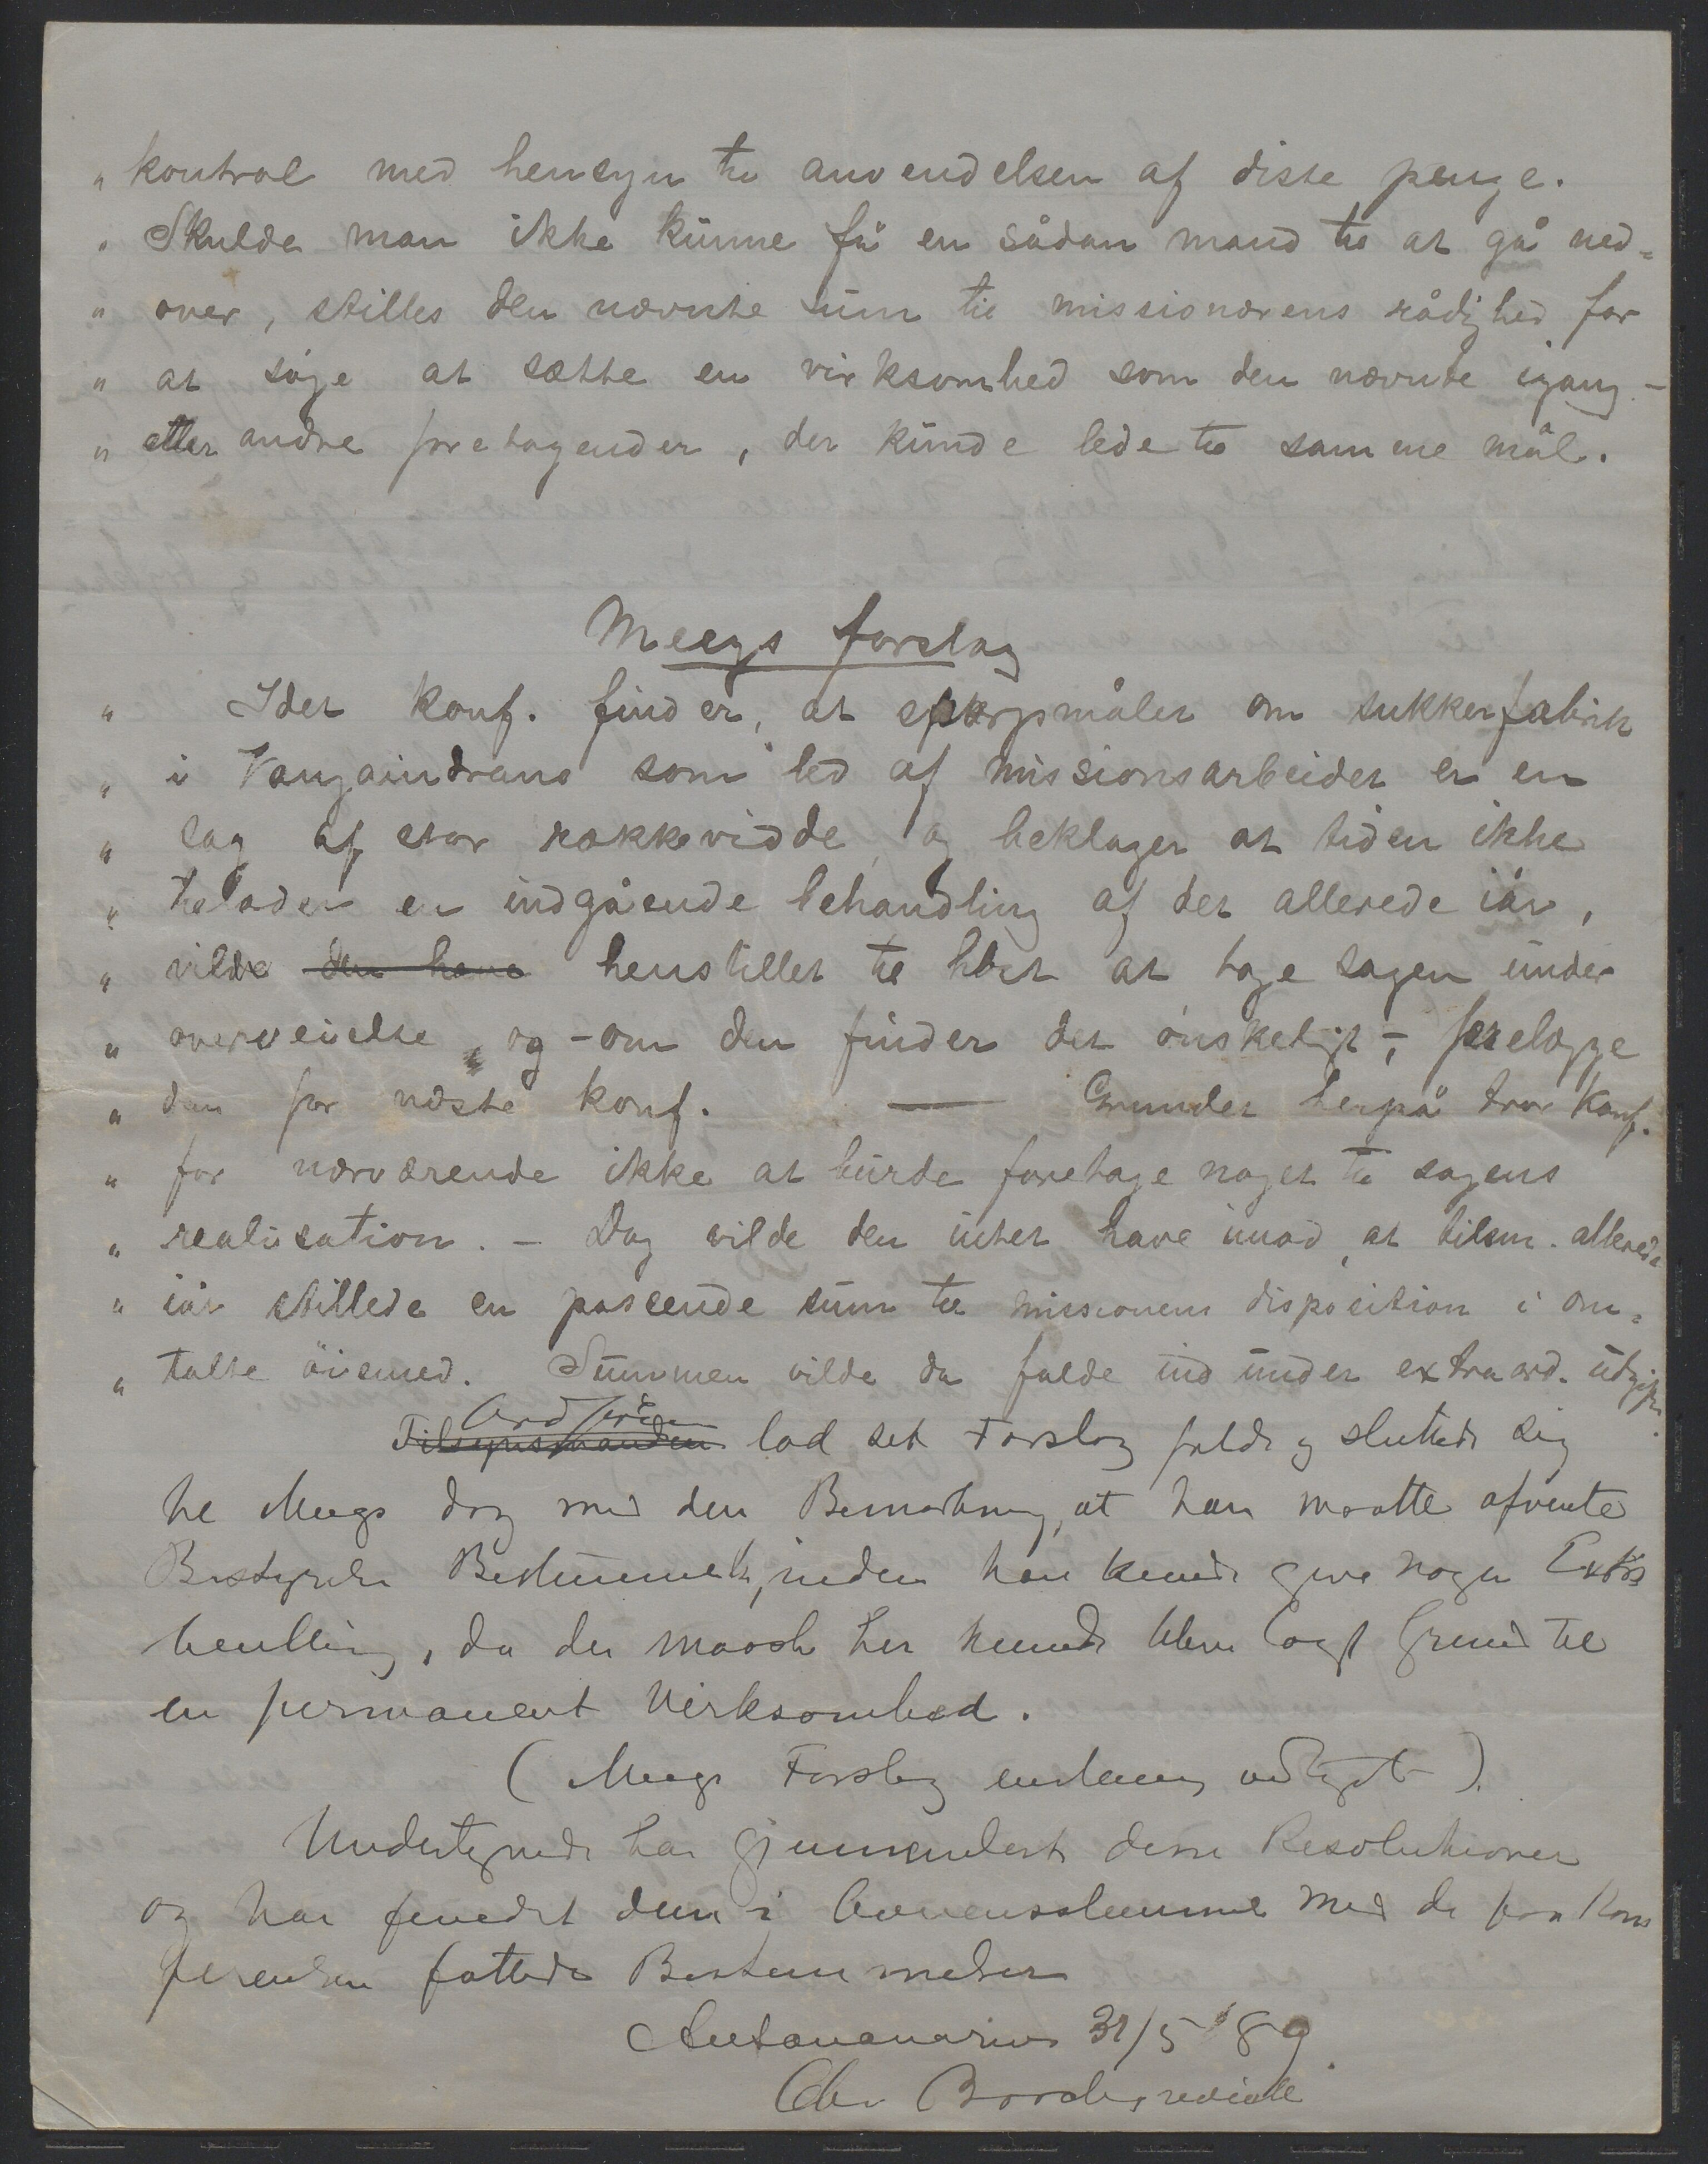 " kontrol med hensyn til anvendelsen af disse penge.
" Skulde man ikke kunne få en sådan mand til at gå ned=
" over, stilles den nævnte sum til missionærens rådighed for
" at søge at sætte en virksomhed som den nævnte igang -
" eller andre foretagender, der kunde lede til samme mål.
Meegs forslag
" Idet konf. finder, at spørgsmålet om sukkerfabrik
" i Vangaindrano som led af missionsarbeidet er en
" sag af stor rækkevidde, og beklager at tiden ikke
" tillader en indgående behandling af det allerede iår,
" vilde den have henstillet til hbst at tage sagen under
" overveielse, og - om den finder det ønskeligt, - forelægge
" den for næste konf. — Grundet herpå tror Konf.
" for nærværende ikke at burde foretage noget til sagens
" realisation. - Dog vilde den intet have imod, at tilsm. allerede
" iår stillede en passende sum til missionens disposition i om=
" talte öiemed. Summen vilde da falde ind under extraord. udgifter.
Ordføreren
Tilsynsmanden lod sit Forslag falde og sluttede sig
til Meegs dog med den Bemærkning, at han maatte afvente
Bestyrelsens Bestemmelse, inden han kunde give nogen Extra
bevilling, da der maaske her kunde blive lagt Grund til
en permanent Virksomhed.
(Meegs Forslag enstemmig vedtaget).
Undertegnede har gjennemlæst disse Resolutioner
og har fundet dem i Overensstemmelse med de paa Kon
ferensen fattede Bestemmelser
Antananarivo 31/5 '89.
Chr Borchgrevink